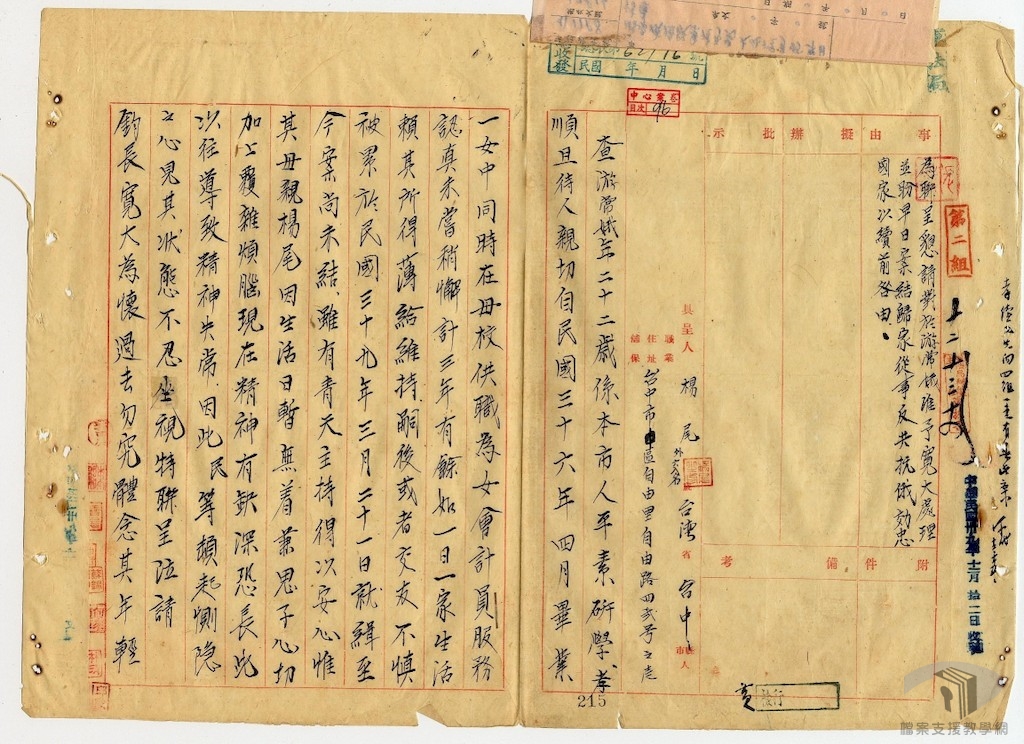 事由擬辦批示
為聯呈懇請對於游常娥准予寬大處理
並盼早日案結歸家從事反共抗俄効忠
國家以續前咎由
附件備考
第二組
中華民國卅九年十二月拾二日收
具呈人 楊尾外 名 台灣省台中市縣人
職業
住址 台中市中區自由里自由路四弍号之
舖保
查游常娥年二十二歲係本市人平素研學孝
順且待人親切自民國三十六年四月畢業
一女中同時在母校供職為女會計員服務
認真未嘗稍懈計三年有餘如一日一家生活
賴其所得薄給維持嗣後或者交友不慎
被累於民國三十九年三月二十一日就緝至
今案尚未結雖有青天主持得以安心惟
其母親楊尾因生活日暫無着兼思子心切
加上覆雜煩腦現在精神有缺深恐長此
以往導致精神失常因此民等頓起惻隐
之心見其狀態不忍坐視特聯呈泣請
鈞長寬大為懷過去勿究體念其年輕
收發
民國 年 月 日
中心案卷
目次 96
215
檔案支援教學網